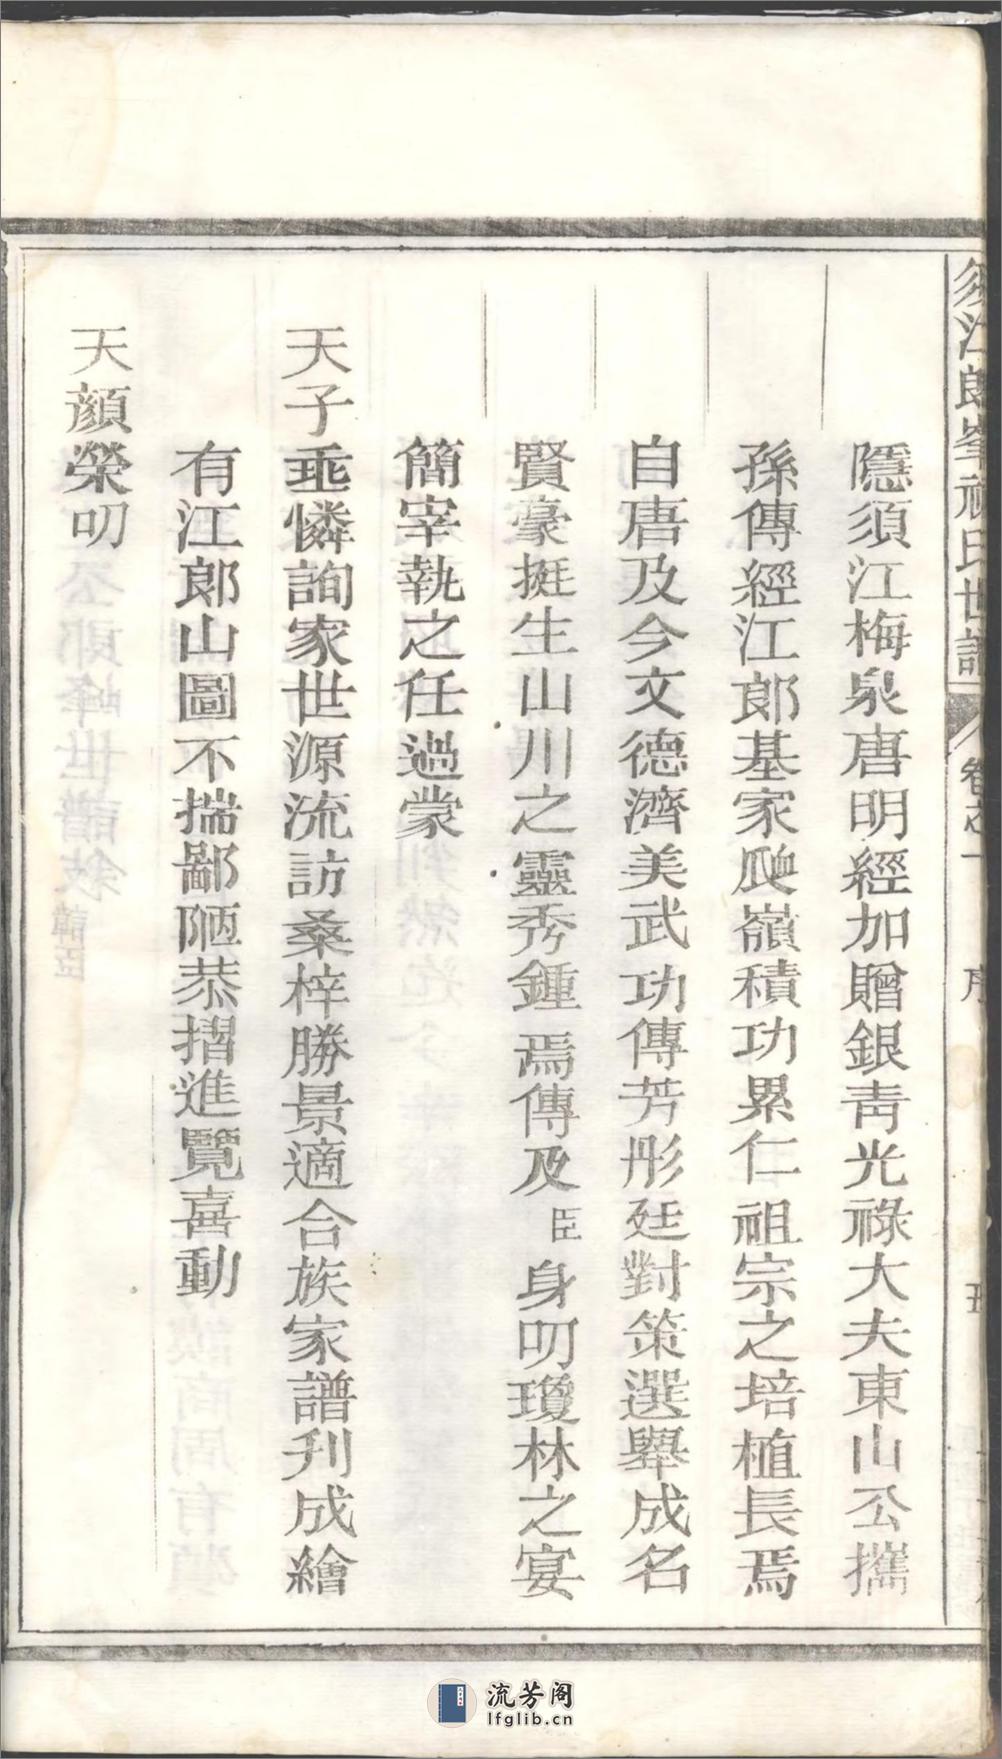 須江郎峯祝氏世譜 卷之一 序
隱須江梅泉唐明經加贈銀青光祿大夫東山公攜
孫傳經江郎基家爬嶺積功累仁祖宗之培植長焉
自唐及今文德濟美武功傳芳彤廷對策選舉成名
賢豪挺生山川之靈秀鍾焉傳及臣身叨瓊林之宴
簡宰執之任過蒙
天子垂憐詢家世源流訪桑梓勝景適合族家譜刋成繪
有江郎山圖不揣鄙陋恭摺進覽喜動
天顏榮叨
流芳阁
lfglib.cn